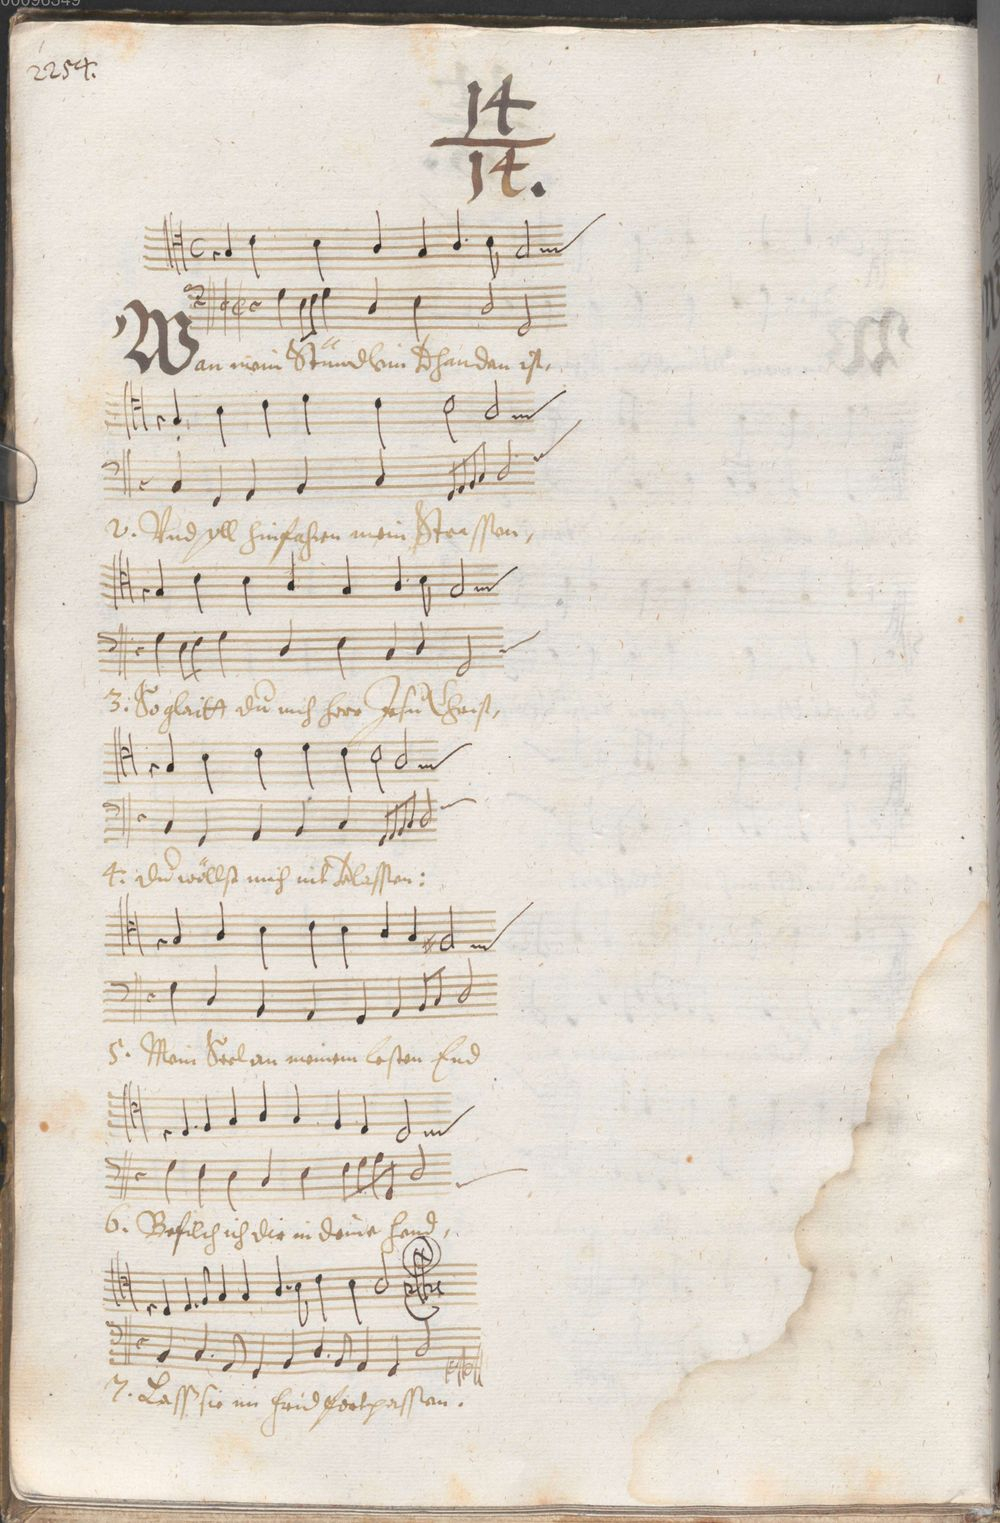 00098349
2254.
14
14.
Wan mein Stündlein vhanden ist,
2. Vnd soll hinfahren mein Strassen,
3. So glaitt du mich Herr Jesu Christ,
4. du wöllst mich nit vlassen:
5. Mein Seel an meinem lesten End
6. Befilch ich dir in deine Hend,
7. Lass sie im frid fortpassen.